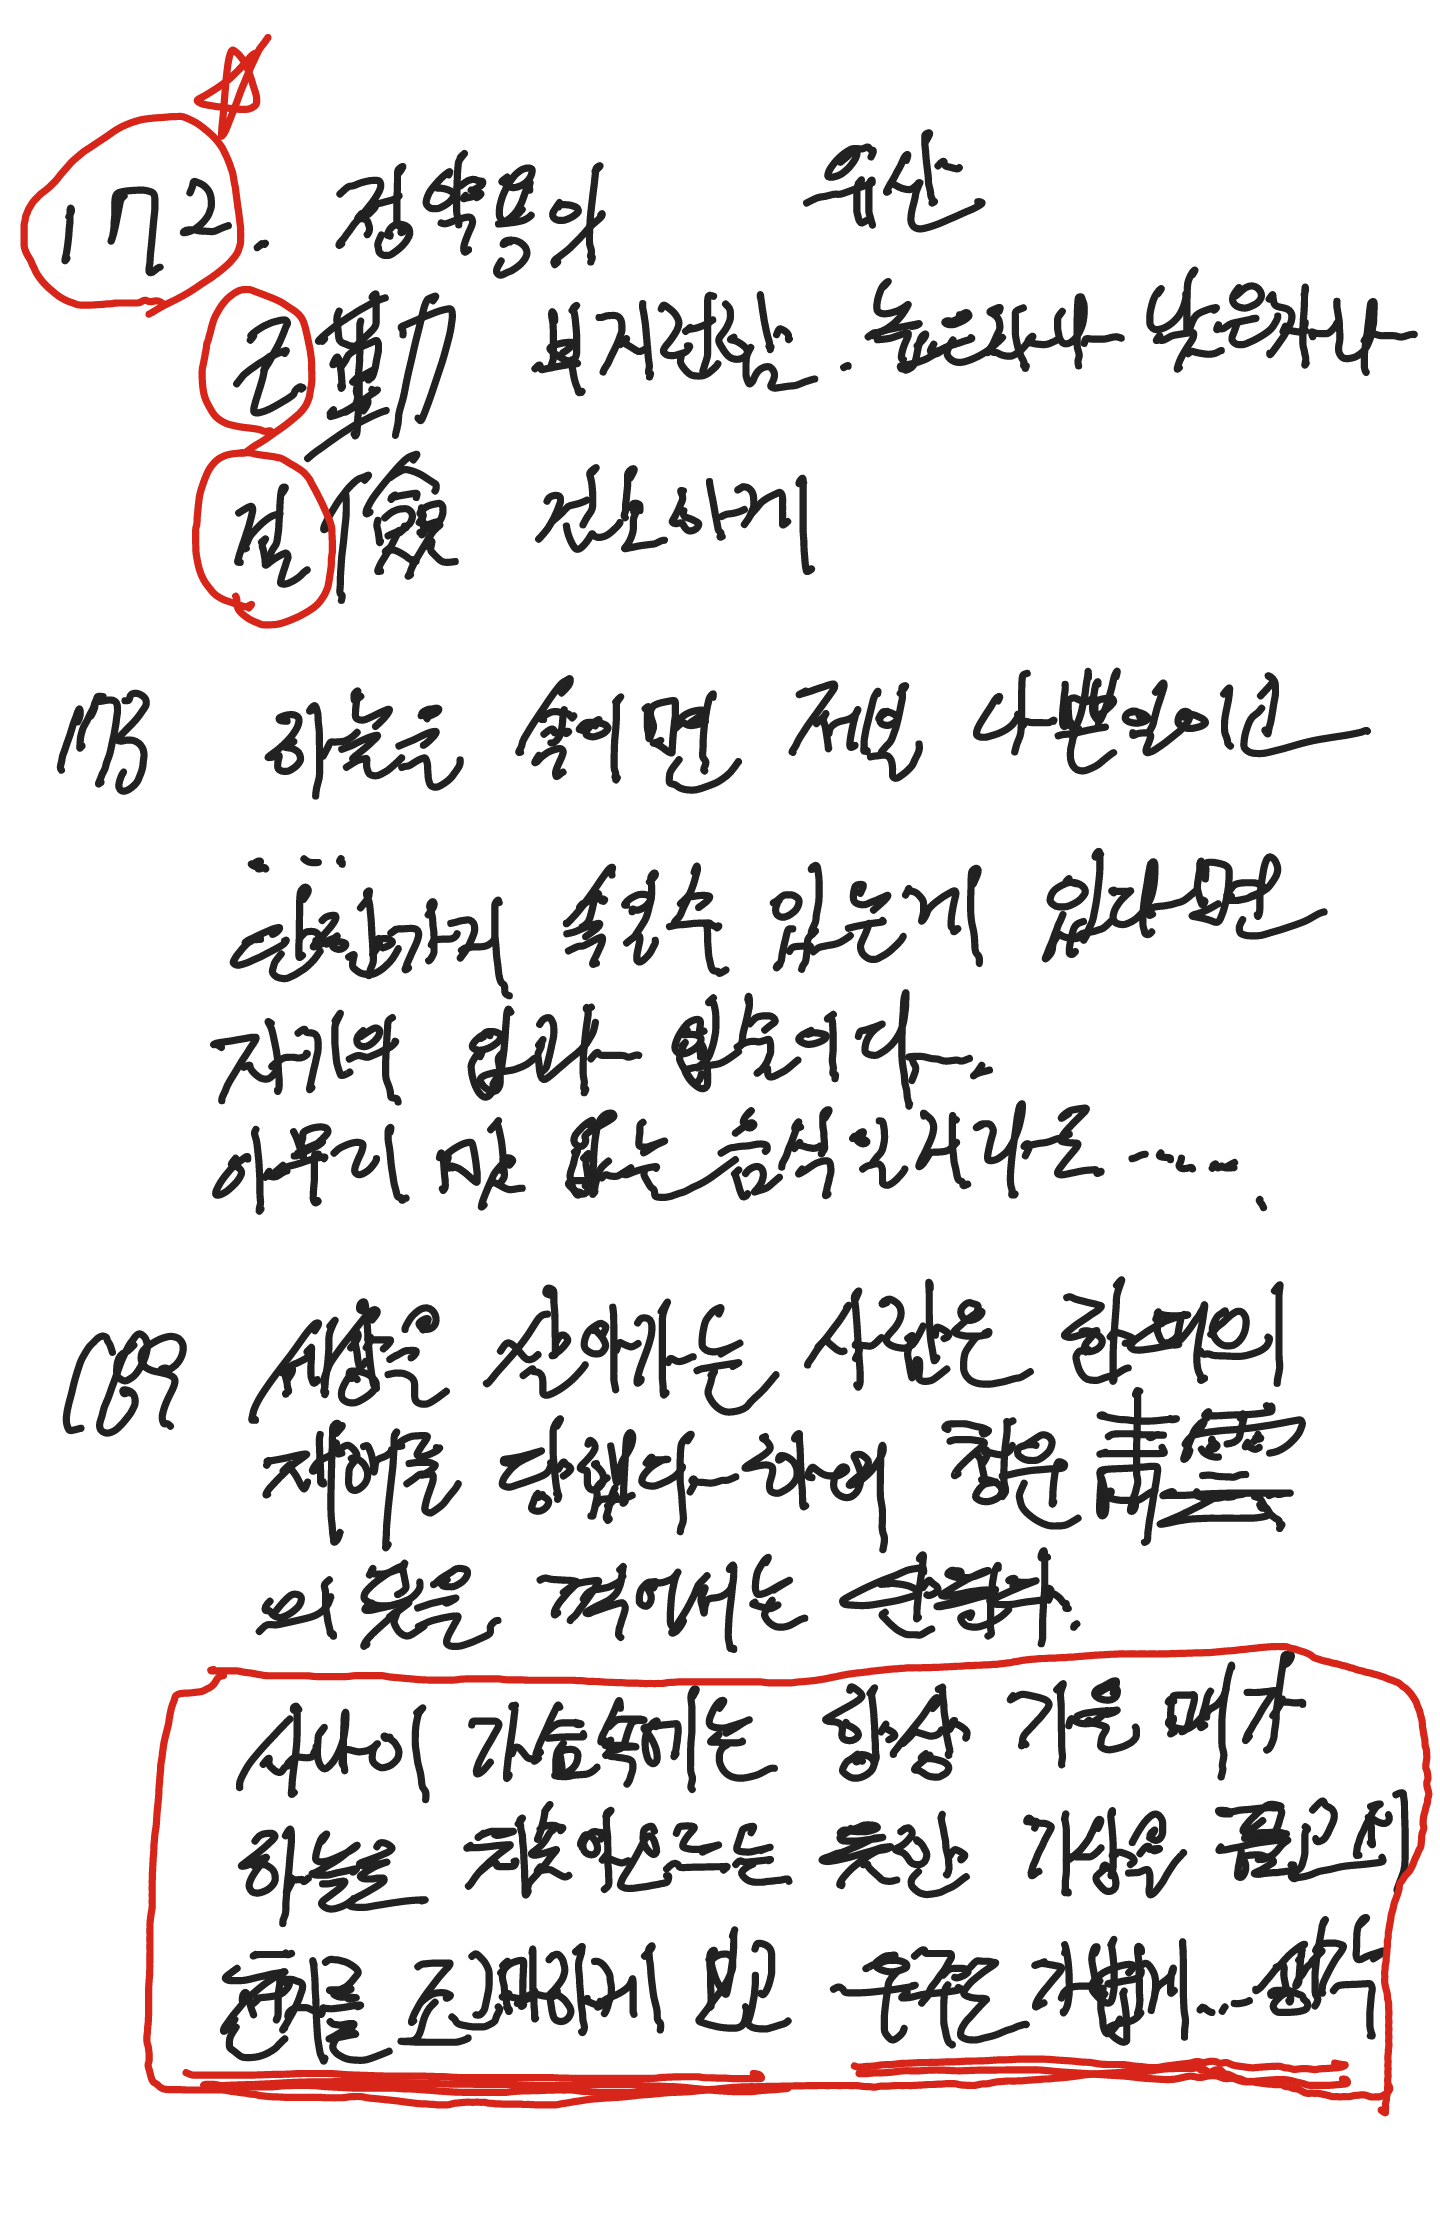 172. 정약용의 유산
근 勤 부지런함. 높은자나 낮은자나
검 儉 검소하게
173 하늘을 속이면 제일 나쁜일이면
단한가지 속일수 있는게 있다면
자기의 입과 입술이다.
아무리 맛 없는 음식일지라도 ......
189 세상을 살아가는 시간은 한때의
재해를 당했다 하여 청운 靑雲
의 뜻을 꺾어서는 안된다.
사나이 가슴속에는 항상 가을 매가
하늘을 치솟아오르는 듯한 기상을 품고서
천지를 조그마하게 보고 우주를 가볍게.....생각